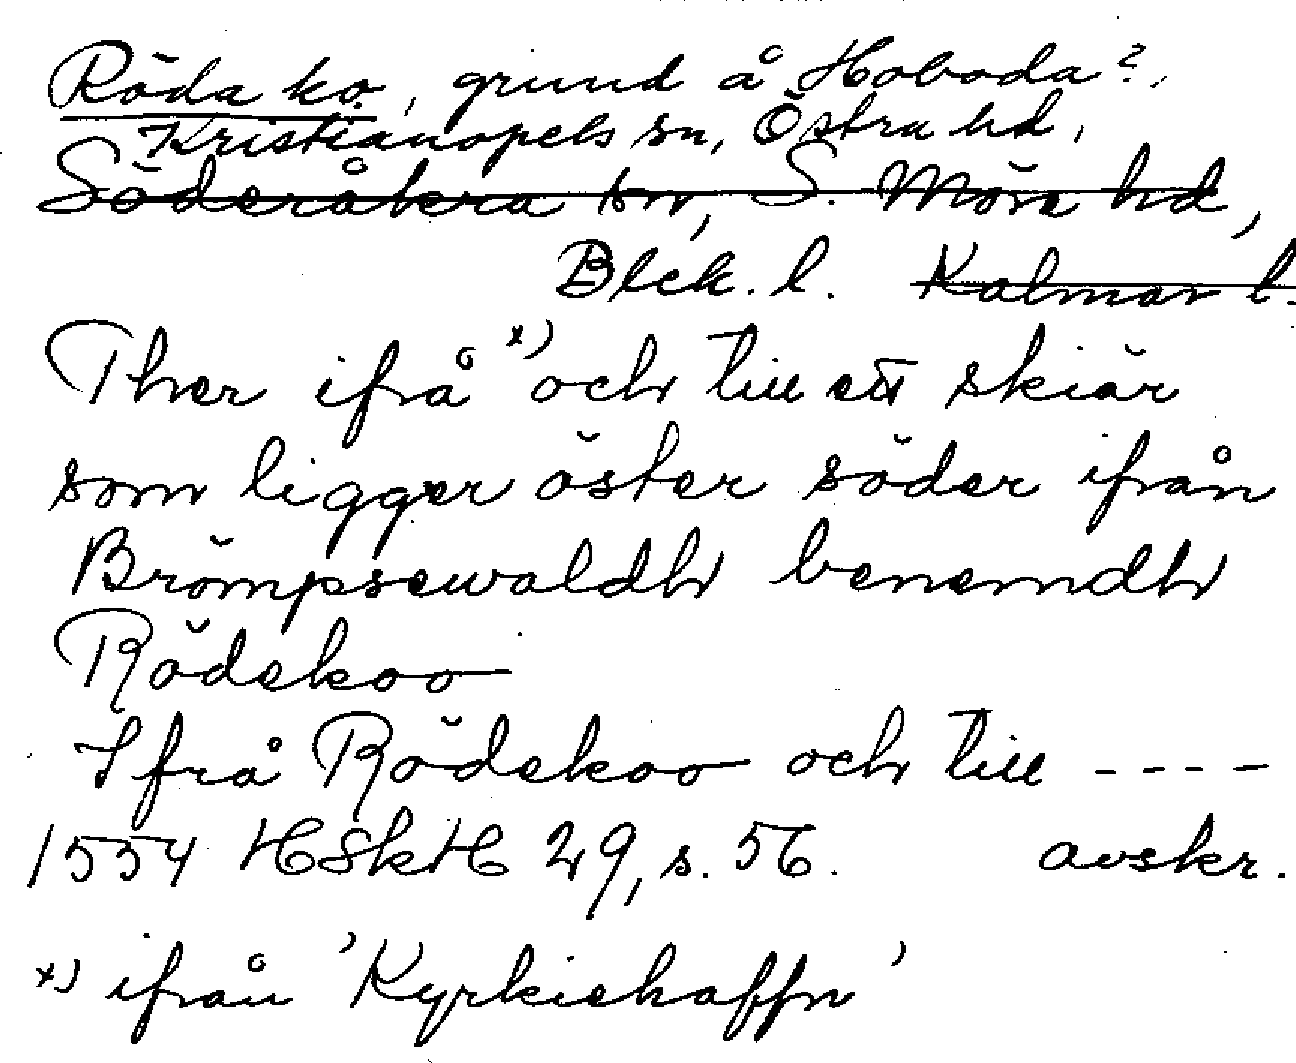 Röda ko, grund å Hoboda?,
Kristianopels sn, Östra hd,
Söderåkra sn, S. Möre hd,
Blek. l. Kalmar l.
Ther ifrå x) och till ett skiär
som ligger öster söder ifrån
Brömpsewaldh benemdh
Rödekoo
Ifrå Rödekoo och till ----
1554 HSkH 29, s. 56. avskr.
x) ifrån 'Kyrkiehaffn'